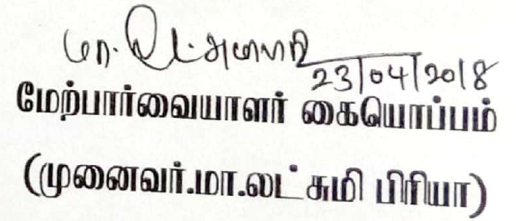 23/04/2018
மேற்பார்வையாளர் கையொப்பம்
(முனைவர்.மா.லட்சுமி பிரியா)